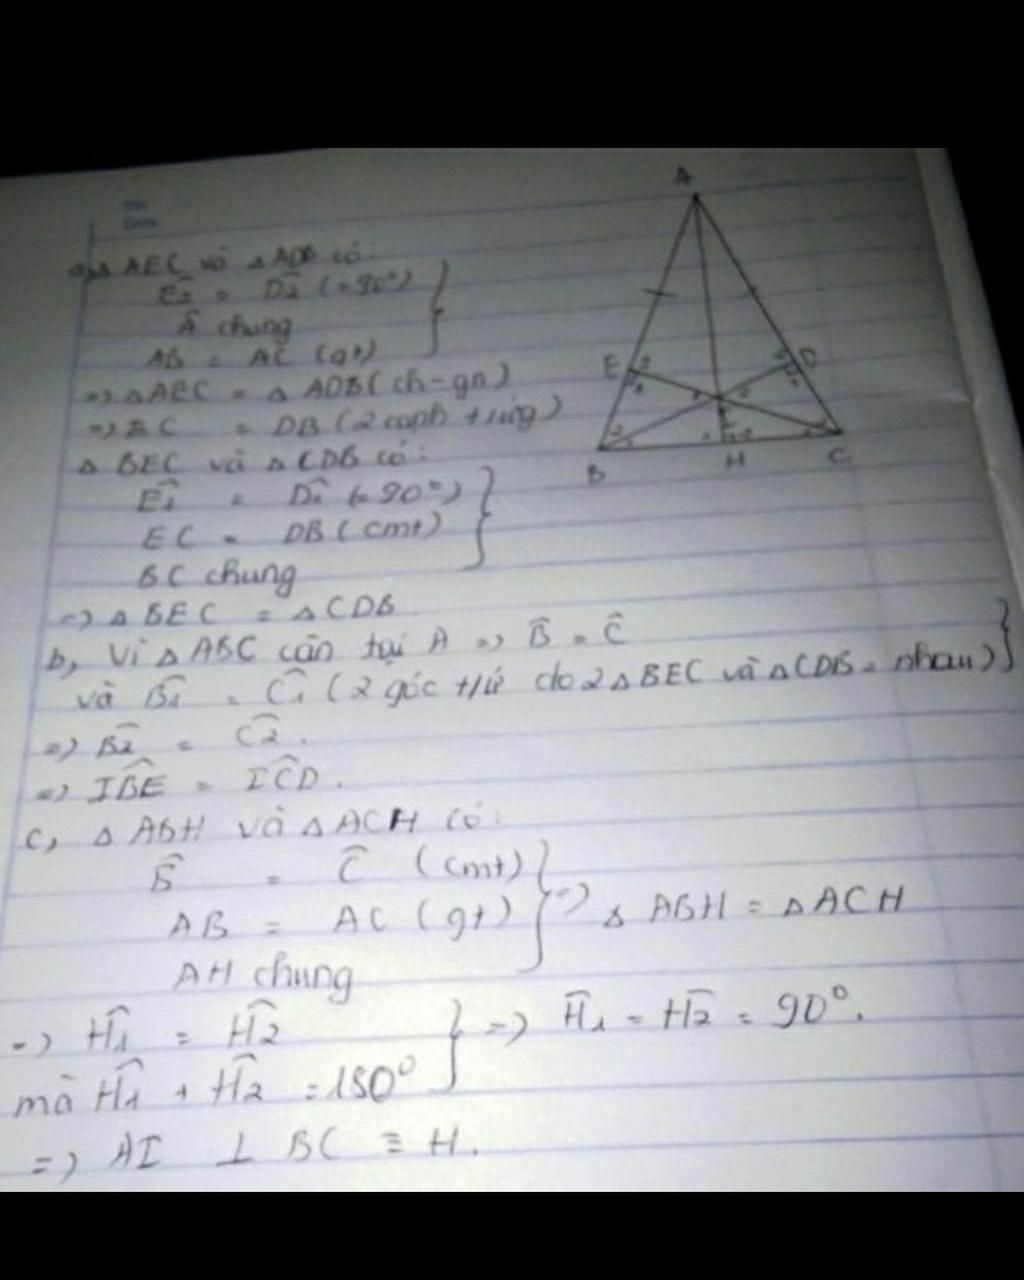 a, △ AEC và △ ADB có:
Ê₂ = D̂₂ (= 90°)
Â chung
AB = AC (gt)
=> △ AEC = △ ADB (ch - gn)
=> EC = DB (2 cạnh t/ứng)
△ BEC và △ CDB có:
Ê₁ = D̂₁ (= 90°)
EC = DB (cmt)
BC chung
=> △ BEC = △ CDB
b, Vì △ ABC cân tại A => B̂ = Ĉ
và B̂₁ = Ĉ₁ (2 góc t/ứ do 2 △ BEC và △ CDB = nhau)
=> B̂₂ = Ĉ₂.
=> IB̂E = IĈD.
c, △ ABH và △ ACH có:
B̂ = Ĉ (cmt)
AB = AC (gt) => △ ABH = △ ACH
AH chung
=> Ĥ₁ = Ĥ₂ => Ĥ₁ = Ĥ₂ = 90°.
mà Ĥ₁ + Ĥ₂ = 180°
=> AI ⊥ BC ≡ H.
A
E
D
B
H
C